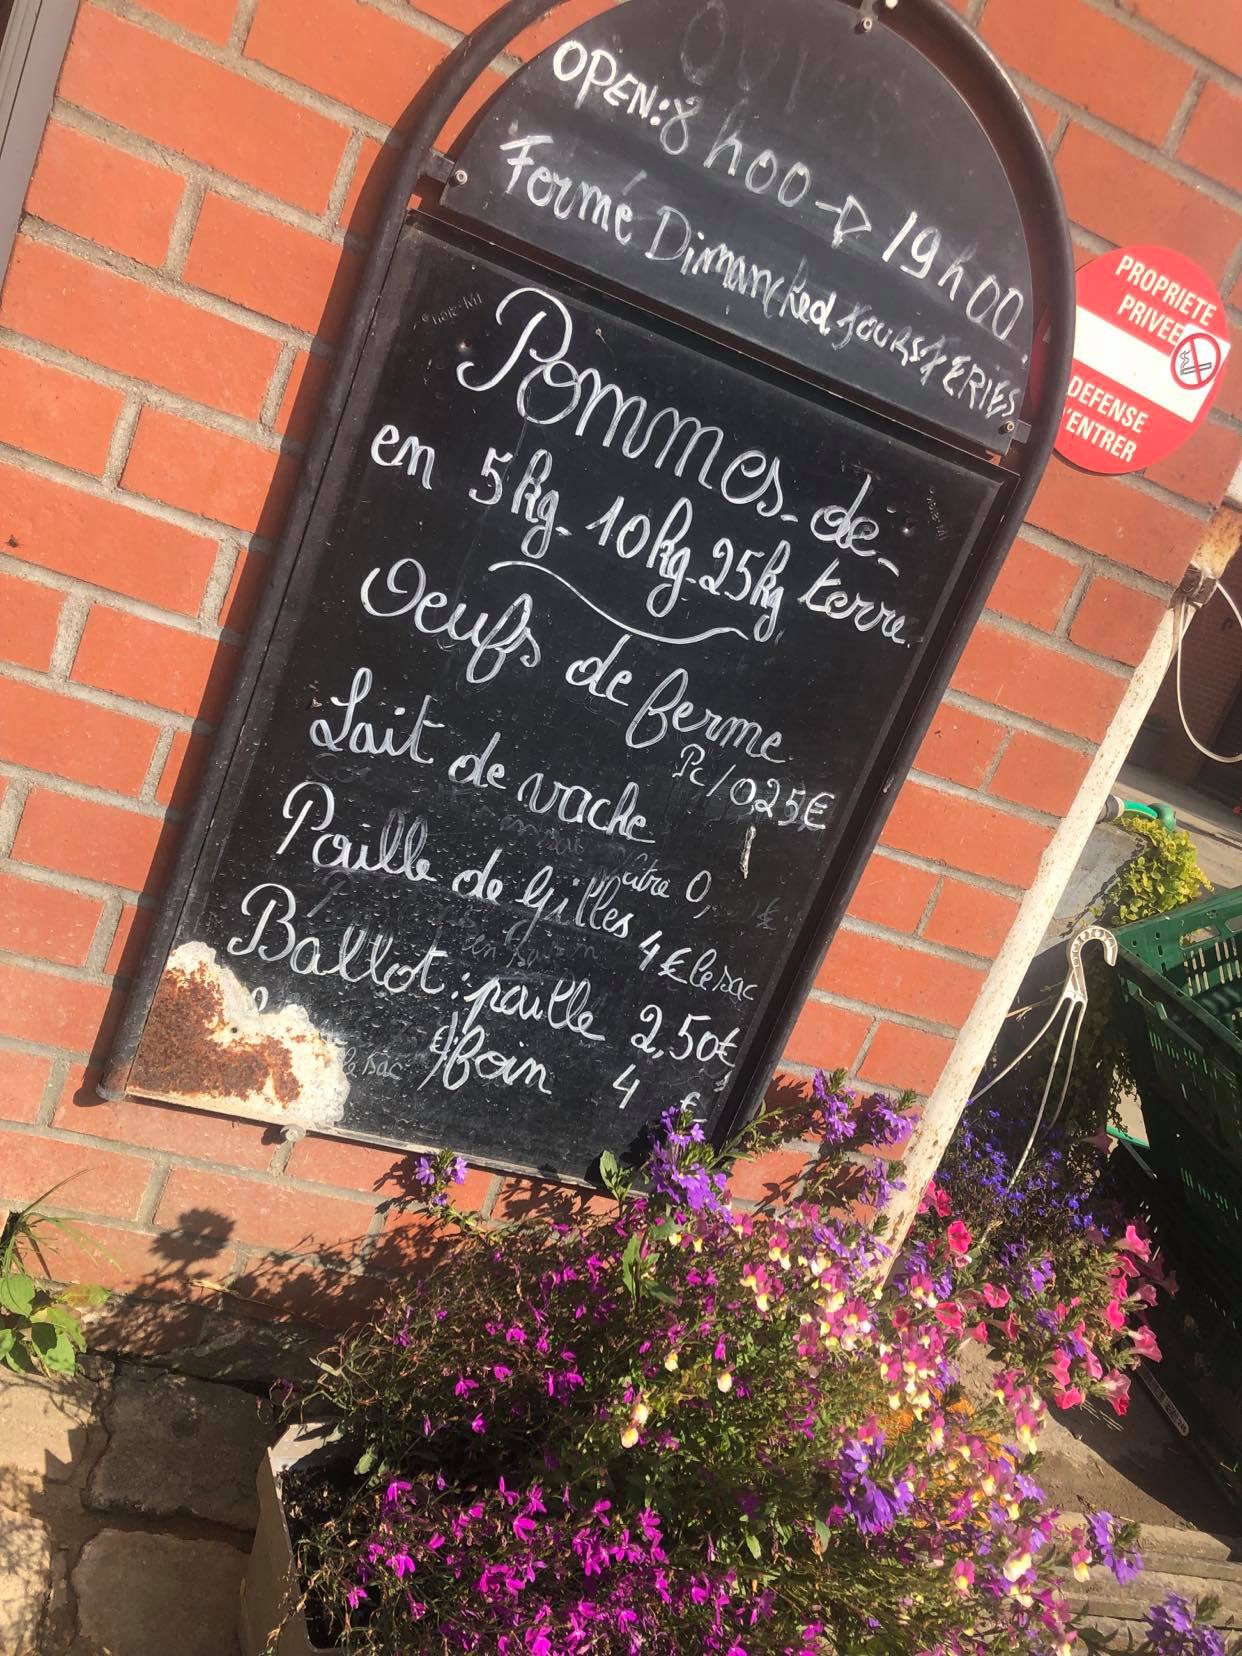 OPEN: 8h00 → 19h00.
Fermé Dimanche et Jours FERIES
Pommes-de-
terre
en 5kg-10kg-25kg
Oeufs de ferme
Pc/0,25€
Lait de vache
litre 0, €
Paille de Gilles
4€ le sac
Ballot: paille 2,50€
foin 4 €
le sac
PROPRIETE
PRIVEE
DEFENSE
D'ENTRER